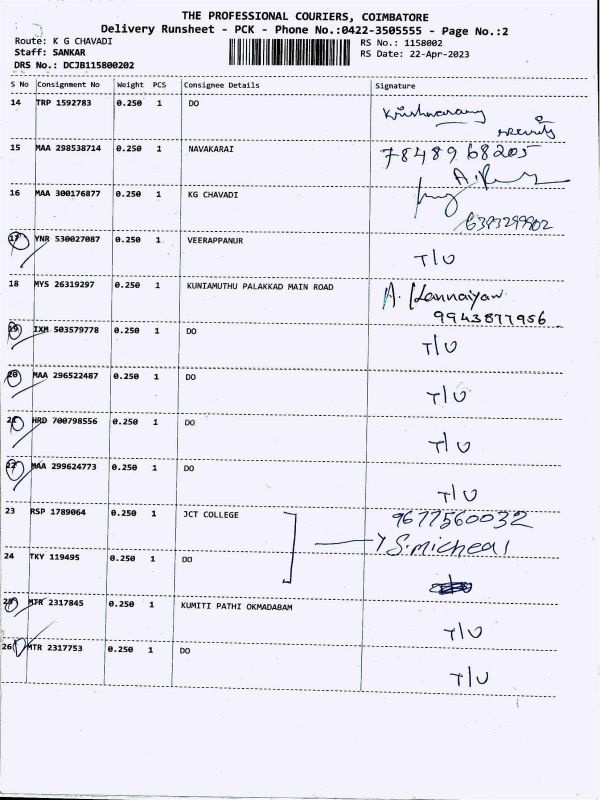 THE PROFESSIONAL COURIERS, COIMBATORE
Delivery Runsheet - PCK - Phone No.:0422-3505555 - Page No.:2
Route: K G CHAVADI
RS No.: 1158002
Staff: SANKAR
RS Date: 22-Apr-2023
DRS No.: DCJB115800202
S No Consignment No Weight PCS Consignee Details Signature
14 TRP 1592783 0.250 1 DO
15 MAA 298538714 0.250 1 NAVAKARAI 7848968205
16 MAA 300176877 0.250 1 KG CHAVADI
6383299902
17 YNR 530027087 0.250 1 VEERAPPANUR T/U
18 MYS 26319297 0.250 1 KUNIAMUTHU PALAKKAD MAIN ROAD A. Kannaiyan
9943877956
19 IXM 503579778 0.250 1 DO T/U
20 MAA 296522487 0.250 1 DO T/U
21 HRD 700798556 0.250 1 DO T/U
22 MAA 299624773 0.250 1 DO T/U
23 RSP 1789064 0.250 1 JCT COLLEGE 9677560032
S.micheal
24 TKY 119495 0.250 1 DO
25 MTR 2317845 0.250 1 KUMITI PATHI OKMADABAM T/U
26 MTR 2317753 0.250 1 DO T/U